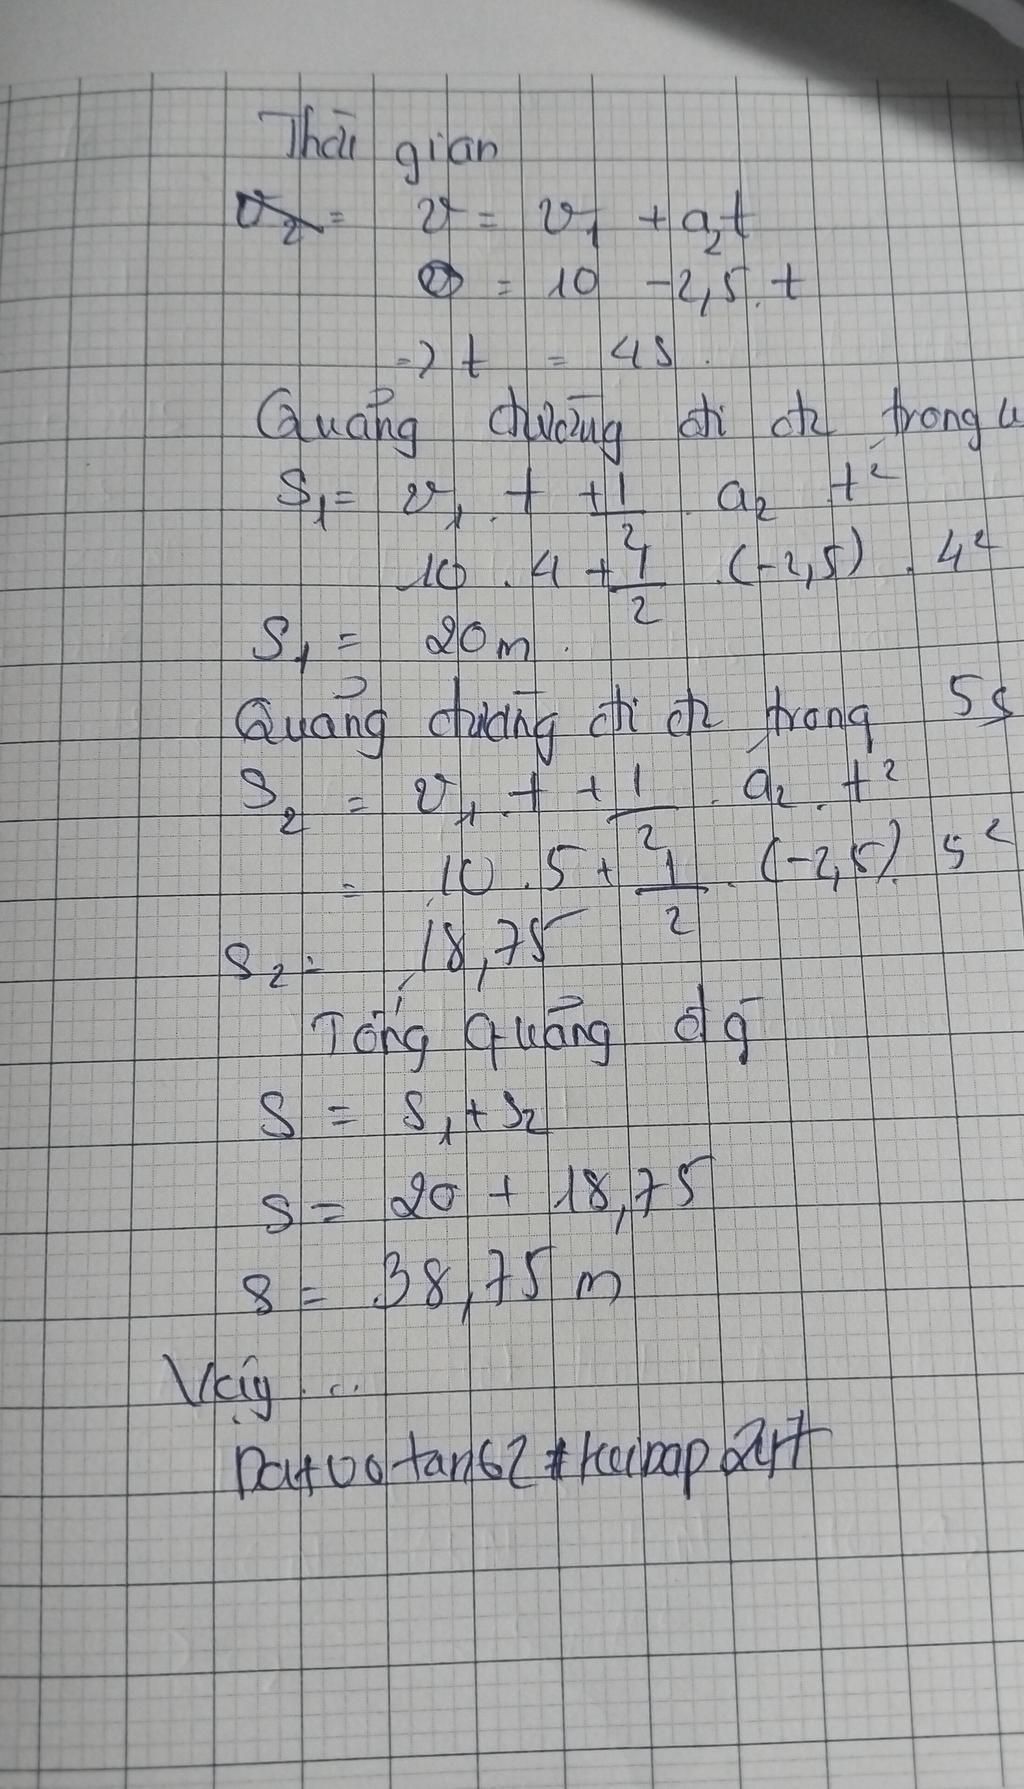 Thời gian
v₂ = v = v₁ + a₂t
0 = 10 - 2,5.t
=> t = 4s.
Quảng đường đi đc trong 4
S₁ = v₁.t + 1/2.a₂ t²
10.4 + 1/2.(-2,5).4²
S₁ = 20m.
Quảng đường đi đc trong 5s
S₂ = v₁.t + 1/2.a₂.t²
= 10.5 + 1/2.(-2,5).5²
S₂ = 18,75
Tổng quảng đg
S = S₁ + S₂
S = 20 + 18,75
S = 38,75 m
Vậy ...